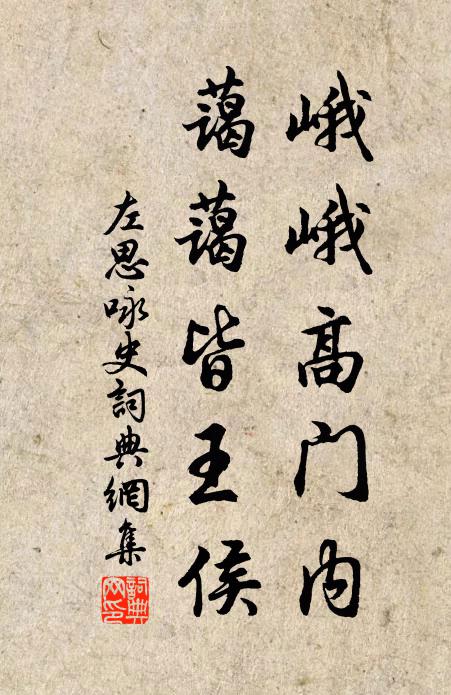 峨峨高门内
蔼蔼皆王侯
左思咏史詞典網集
詞典网印